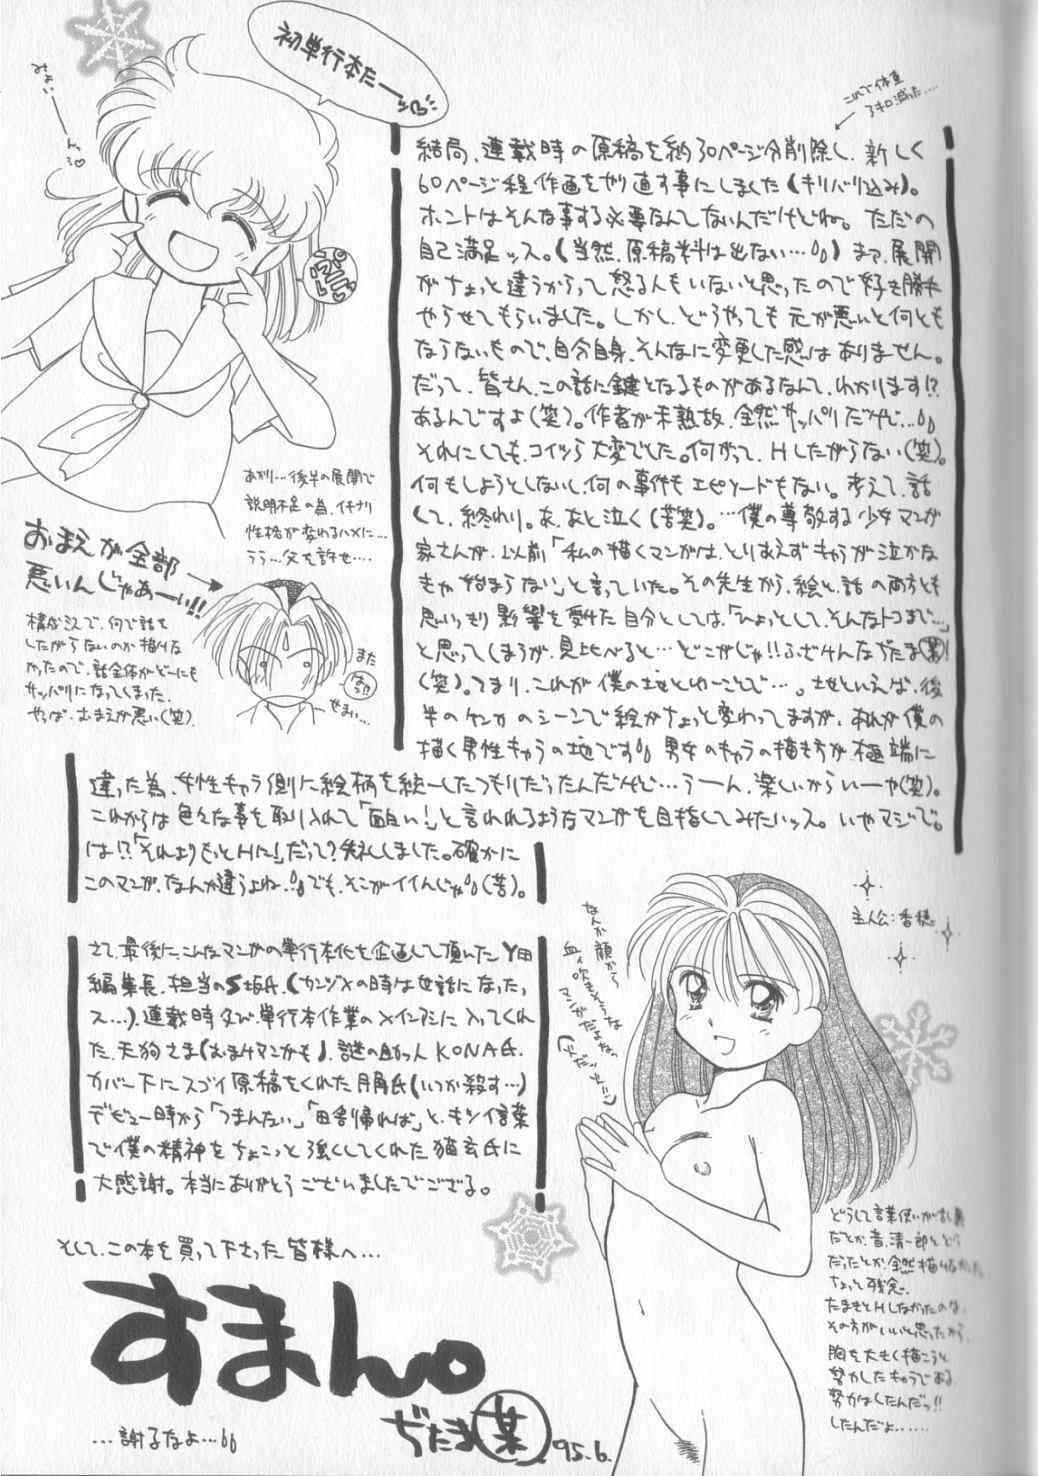 初単行本だー
みょいーーーん
このせいで体重
結局、連載時の原稿を約30ページ分削除し、新しく
60ページ程作画をやり直す事にしました(キリバリ込み)。
ホントはそんな事する必要なんてないんだけどね。ただの
自己満足ッス。(当然、原稿料は出ない…)まァ、展開
がちょっと違うからって怒る人もいないと思ったので好き勝手
やらせてもらいました。しかし、どうやっても元が悪いと何とも
ならないもので、自分自身、そんなに変更した感はありません。
だって、皆さん、この話に鍵となるものがあるなんて、わかります!?
あるんですよ(笑)。作者が未熟故、全然サッパリだけど…
それにしても、コイツら大変でした。何がって、Hしたがらない(笑)。
何もしようとしないし、何の事件もエピソードもない。考えて、話
して、終わり。あ、あと泣く(苦笑)。…僕の尊敬する少女マンガ
家さんが、以前「私の描くマンガは、とりあえずキャラが泣かな
きゃ始まらない」と言っていた。その先生から、絵と話の両方とも
思いっきり影響を受けた自分としては、「ひょっとして、そんなトコまで…」
と思ってしまうが、見比べると…どこがじゃ!!ふざけんなぢたま(某)!
(笑)。つまり、これが僕の地とゆーことで…。地といえば、後
半のケンカのシーンで絵がちょっと変わってますが、あれが僕の
描く男性キャラの地です。男女のキャラの描き方が極端に
違った為、女性キャラ側に絵柄を統一したつもりだったんだけど…うーん、楽しいからいーや(笑)。
これからは色々な事を取り入れて「面白い!」と言われるようなマンガを目指してみたいッス。いやマジで。
は!?「それよりもっとHに!」だって?失礼しました。確かに
このマンガ、なんか違うよね。でも、そこがイイんじゃ(苦)。
あかり…後半の展開で
説明不足の為、イキナリ
性格が変わるハメに…
うぅ…父を許せ…
おまえが全部
悪いんじゃあーい!!
構成ミスで、何で話を
したがらないのか描けな
かったので、話全体がどーにも
サッパリになってしまった。
やっぱ、おまえが悪い(笑)。
また
せまい…
さて、最後に、こんなマンガの単行本化を企画して頂いたY田
編集長、担当のS坂氏、(カンヅメの時は世話になったッ
ス…)、連載時及び、単行本作業のメインアシに入ってくれ
た、天狗さま(おまけマンガも)、謎の助っ人KONA氏、
カバー下にスゴイ原稿をくれた月角氏(いつか殺す…)
デビュー時から「つまんない」「田舎帰れば」と、キツイ言葉
で僕の精神をちょこっと強くしてくれた猫玄氏に
大感謝。本当にありがとうございましたでござる。
主人公:香穂
なんか顔から
血ィ吹きそうな
マンガだよねぇ
どうして言葉使いが
だとか、音、清一郎とどう
だったとか、全然描けなかった
ちょっと残念。
たまきとHしなかったのは、
その方がいいと思ったから。
胸を大きく描こうと
努力したキャラである
努力はしたんだっ!!
したんだよ……
そして、この本を買って下さった皆様へ…
すまん。
ぢたま(某)
'95.6.
…謝るなよ…